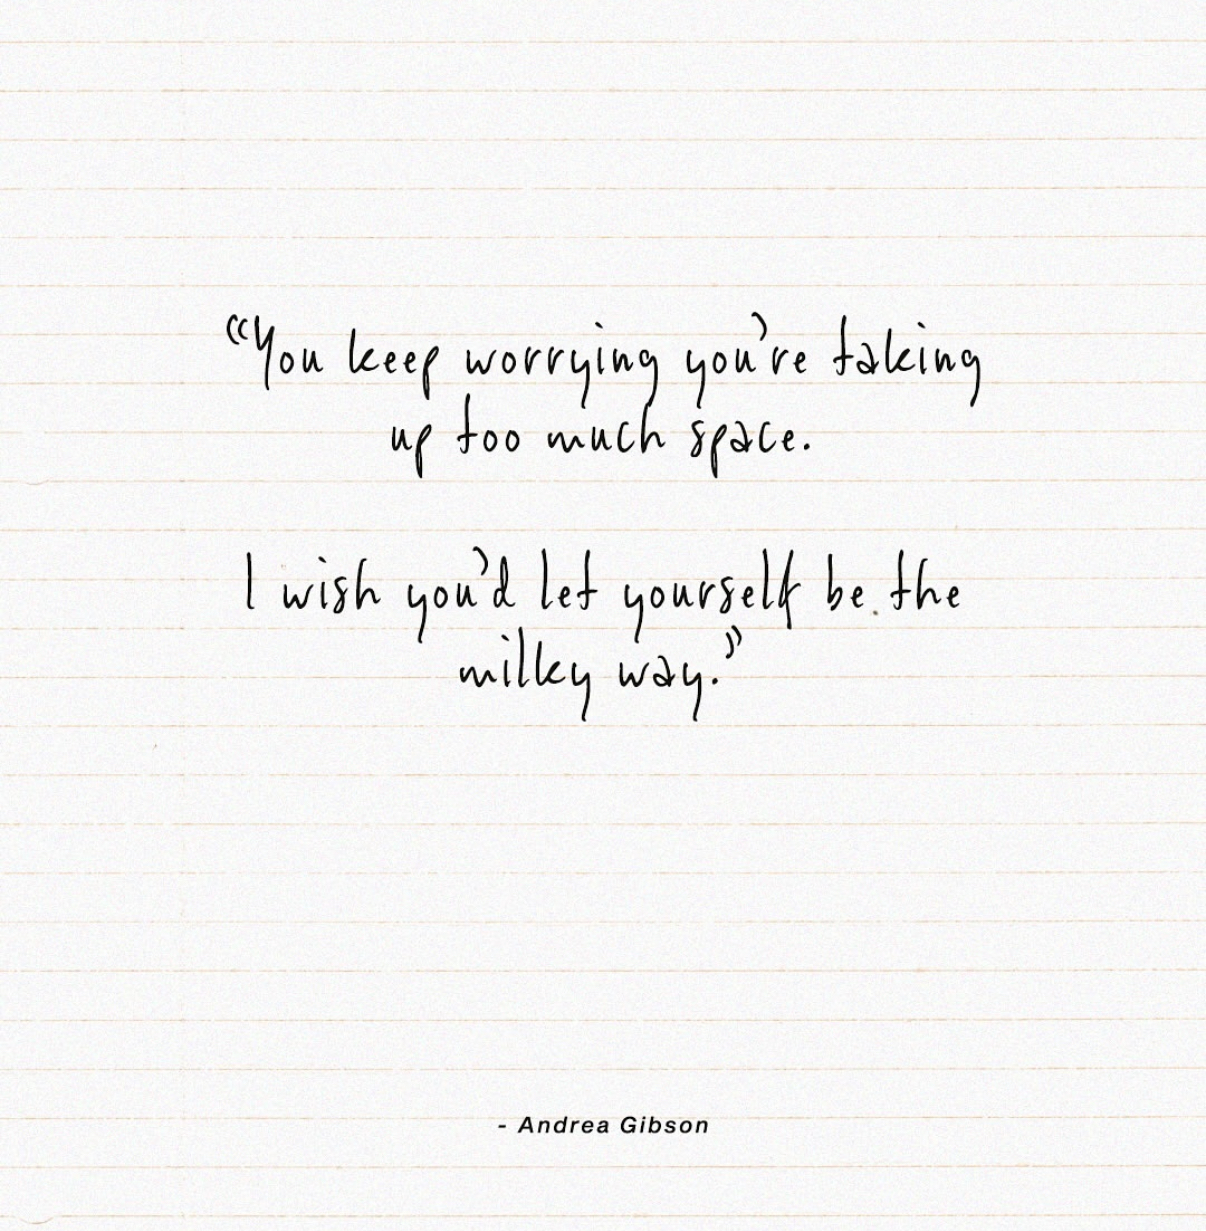 “You keep worrying you’re taking
up too much space.
I wish you’d let yourself be the
milky way.”
- Andrea Gibson